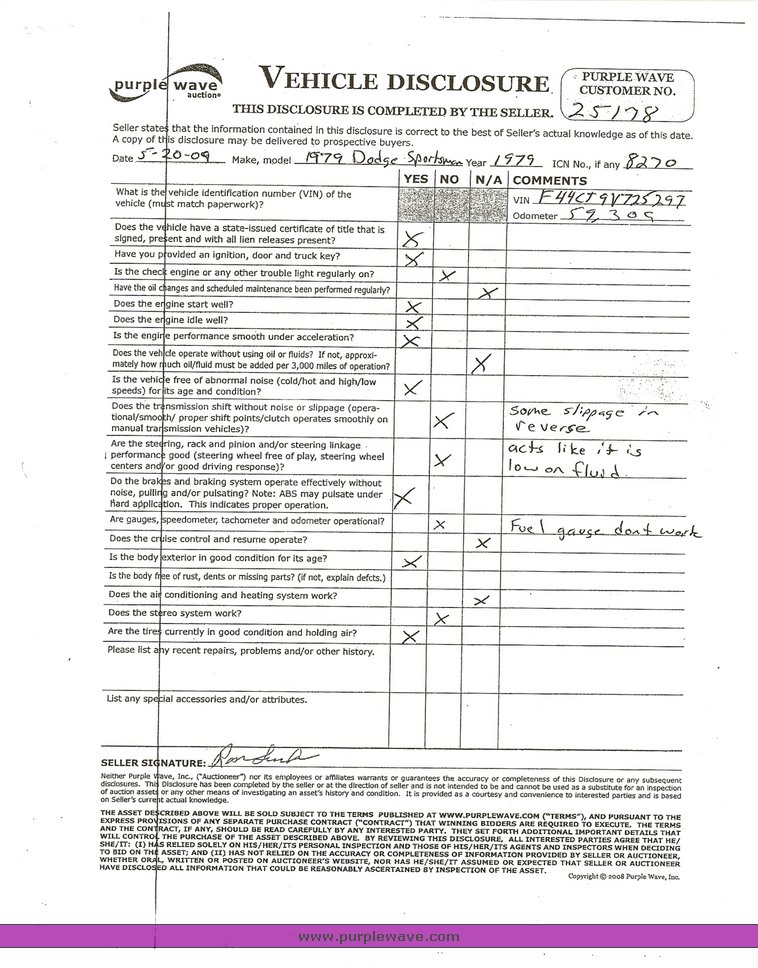 purple wave
auction®
VEHICLE DISCLOSURE
PURPLE WAVE
CUSTOMER NO.
25178
THIS DISCLOSURE IS COMPLETED BY THE SELLER.
Seller states that the information contained in this disclosure is correct to the best of Seller's actual knowledge as of this date.
A copy of this disclosure may be delivered to prospective buyers.
Date 5-20-09 Make, model 1979 Dodge Sportsman Year 1979 ICN No., if any 8270
YES NO N/A COMMENTS
What is the vehicle identification number (VIN) of the
vehicle (must match paperwork)?
VIN F44CT9V725297
Odometer 59,309
Does the vehicle have a state-issued certificate of title that is
signed, present and with all lien releases present? X
Have you provided an ignition, door and truck key? X
Is the check engine or any other trouble light regularly on? X
Have the oil changes and scheduled maintenance been performed regularly? X
Does the engine start well? X
Does the engine idle well? X
Is the engine performance smooth under acceleration? X
Does the vehicle operate without using oil or fluids? If not, approxi-
mately how much oil/fluid must be added per 3,000 miles of operation? X
Is the vehicle free of abnormal noise (cold/hot and high/low
speeds) for its age and condition? X
Does the transmission shift without noise or slippage (opera-
tional/smooth/ proper shift points/clutch operates smoothly on
manual transmission vehicles)? X
some slippage in
reverse
Are the steering, rack and pinion and/or steering linkage
performance good (steering wheel free of play, steering wheel
centers and/or good driving response)? X
acts like it is
low on fluid.
Do the brakes and braking system operate effectively without
noise, pulling and/or pulsating? Note: ABS may pulsate under
hard application. This indicates proper operation. X
Are gauges, speedometer, tachometer and odometer operational? X Fuel gauge dont work
Does the cruise control and resume operate? X
Is the body exterior in good condition for its age? X
Is the body free of rust, dents or missing parts? (if not, explain defcts.)
Does the air conditioning and heating system work? X
Does the stereo system work? X
Are the tires currently in good condition and holding air? X
Please list any recent repairs, problems and/or other history.
List any special accessories and/or attributes.
SELLER SIGNATURE:
Neither Purple Wave, Inc., ("Auctioneer") nor its employees or affiliates warrants or guarantees the accuracy or completeness of this Disclosure or any subsequent
disclosures. This Disclosure has been completed by the seller or at the direction of seller and is not intended to be and cannot be used as a substitute for an inspection
of auction assets or any other means of investigating an asset's history and condition. It is provided as a courtesy and convenience to interested parties and is based
on Seller's current actual knowledge.
THE ASSET DESCRIBED ABOVE WILL BE SOLD SUBJECT TO THE TERMS PUBLISHED AT WWW.PURPLEWAVE.COM ("TERMS"), AND PURSUANT TO THE
EXPRESS PROVISIONS OF ANY SEPARATE PURCHASE CONTRACT ("CONTRACT") THAT WINNING BIDDERS ARE REQUIRED TO EXECUTE. THE TERMS
AND THE CONTRACT, IF ANY, SHOULD BE READ CAREFULLY BY ANY INTERESTED PARTY. THEY SET FORTH ADDITIONAL IMPORTANT DETAILS THAT
WILL CONTROL THE PURCHASE OF THE ASSET DESCRIBED ABOVE. BY REVIEWING THIS DISCLOSURE, ALL INTERESTED PARTIES AGREE THAT HE/
SHE/IT: (I) HAS RELIED SOLELY ON HIS/HER/ITS PERSONAL INSPECTION AND THOSE OF HIS/HER/ITS AGENTS AND INSPECTORS WHEN DECIDING
TO BID ON THE ASSET; AND (II) HAS NOT RELIED ON THE ACCURACY OR COMPLETENESS OF INFORMATION PROVIDED BY SELLER OR AUCTIONEER,
WHETHER ORAL, WRITTEN OR POSTED ON AUCTIONEER'S WEBSITE, NOR HAS HE/SHE/IT ASSUMED OR EXPECTED THAT SELLER OR AUCTIONEER
HAVE DISCLOSED ALL INFORMATION THAT COULD BE REASONABLY ASCERTAINED BY INSPECTION OF THE ASSET.
Copyright © 2008 Purple Wave, Inc.
www.purplewave.com